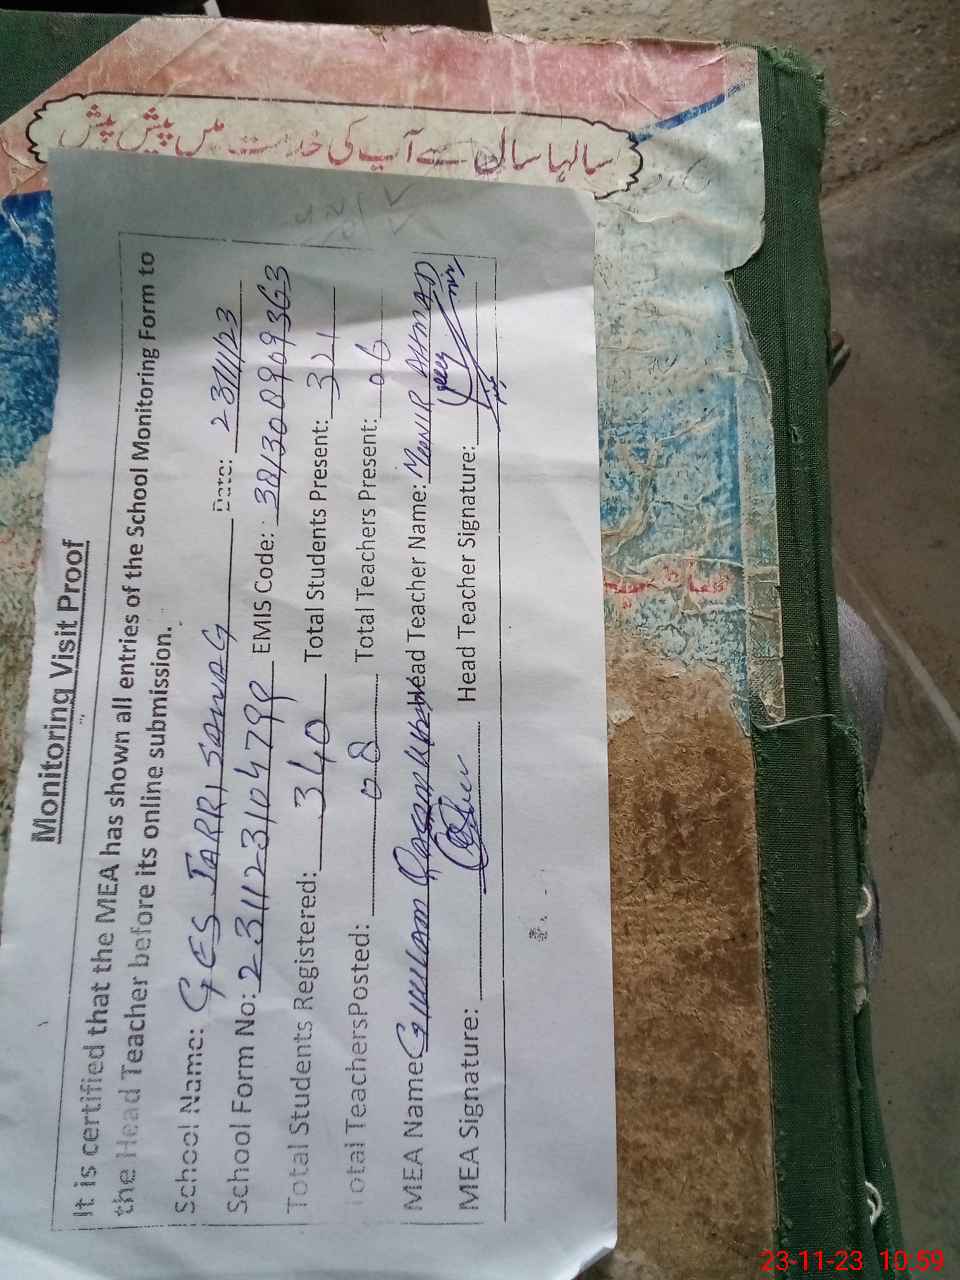 سالہا سال سے آپ کی خدمت میں پیش پیش
Monitoring Visit Proof
It is certified that the MEA has shown all entries of the School Monitoring Form to
the Head Teacher before its online submission.
School Name: GES JARRI SANAG Date: 23/11/23
School Form No: EMIS Code:
Total Students Registered: 340 Total Students Present: 321
Total TeachersPosted: 08 Total Teachers Present: 06
MEA Name GHULAM Head Teacher Name: MUNIR AHMAD
MEA Signature: Head Teacher Signature:
23-11-23 10:59